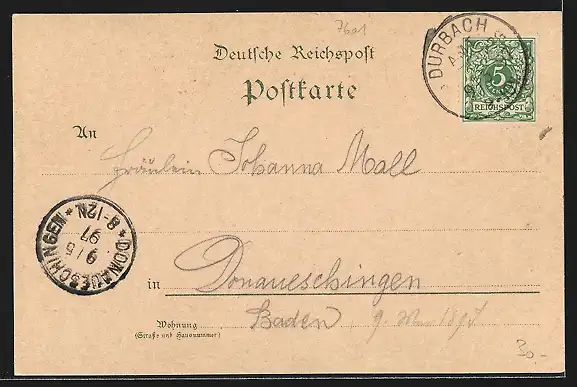 7601
Deutsche Reichspost
Postkarte
DURBACH
5
REICHSPOST
An
Fräulein Johanna Mall
* DONAUESCHINGEN *
9/5
97
8-12N.
in Donaueschingen
Baden 9. Mai 1897
Wohnung
(Straße und Hausnummer)
30.-